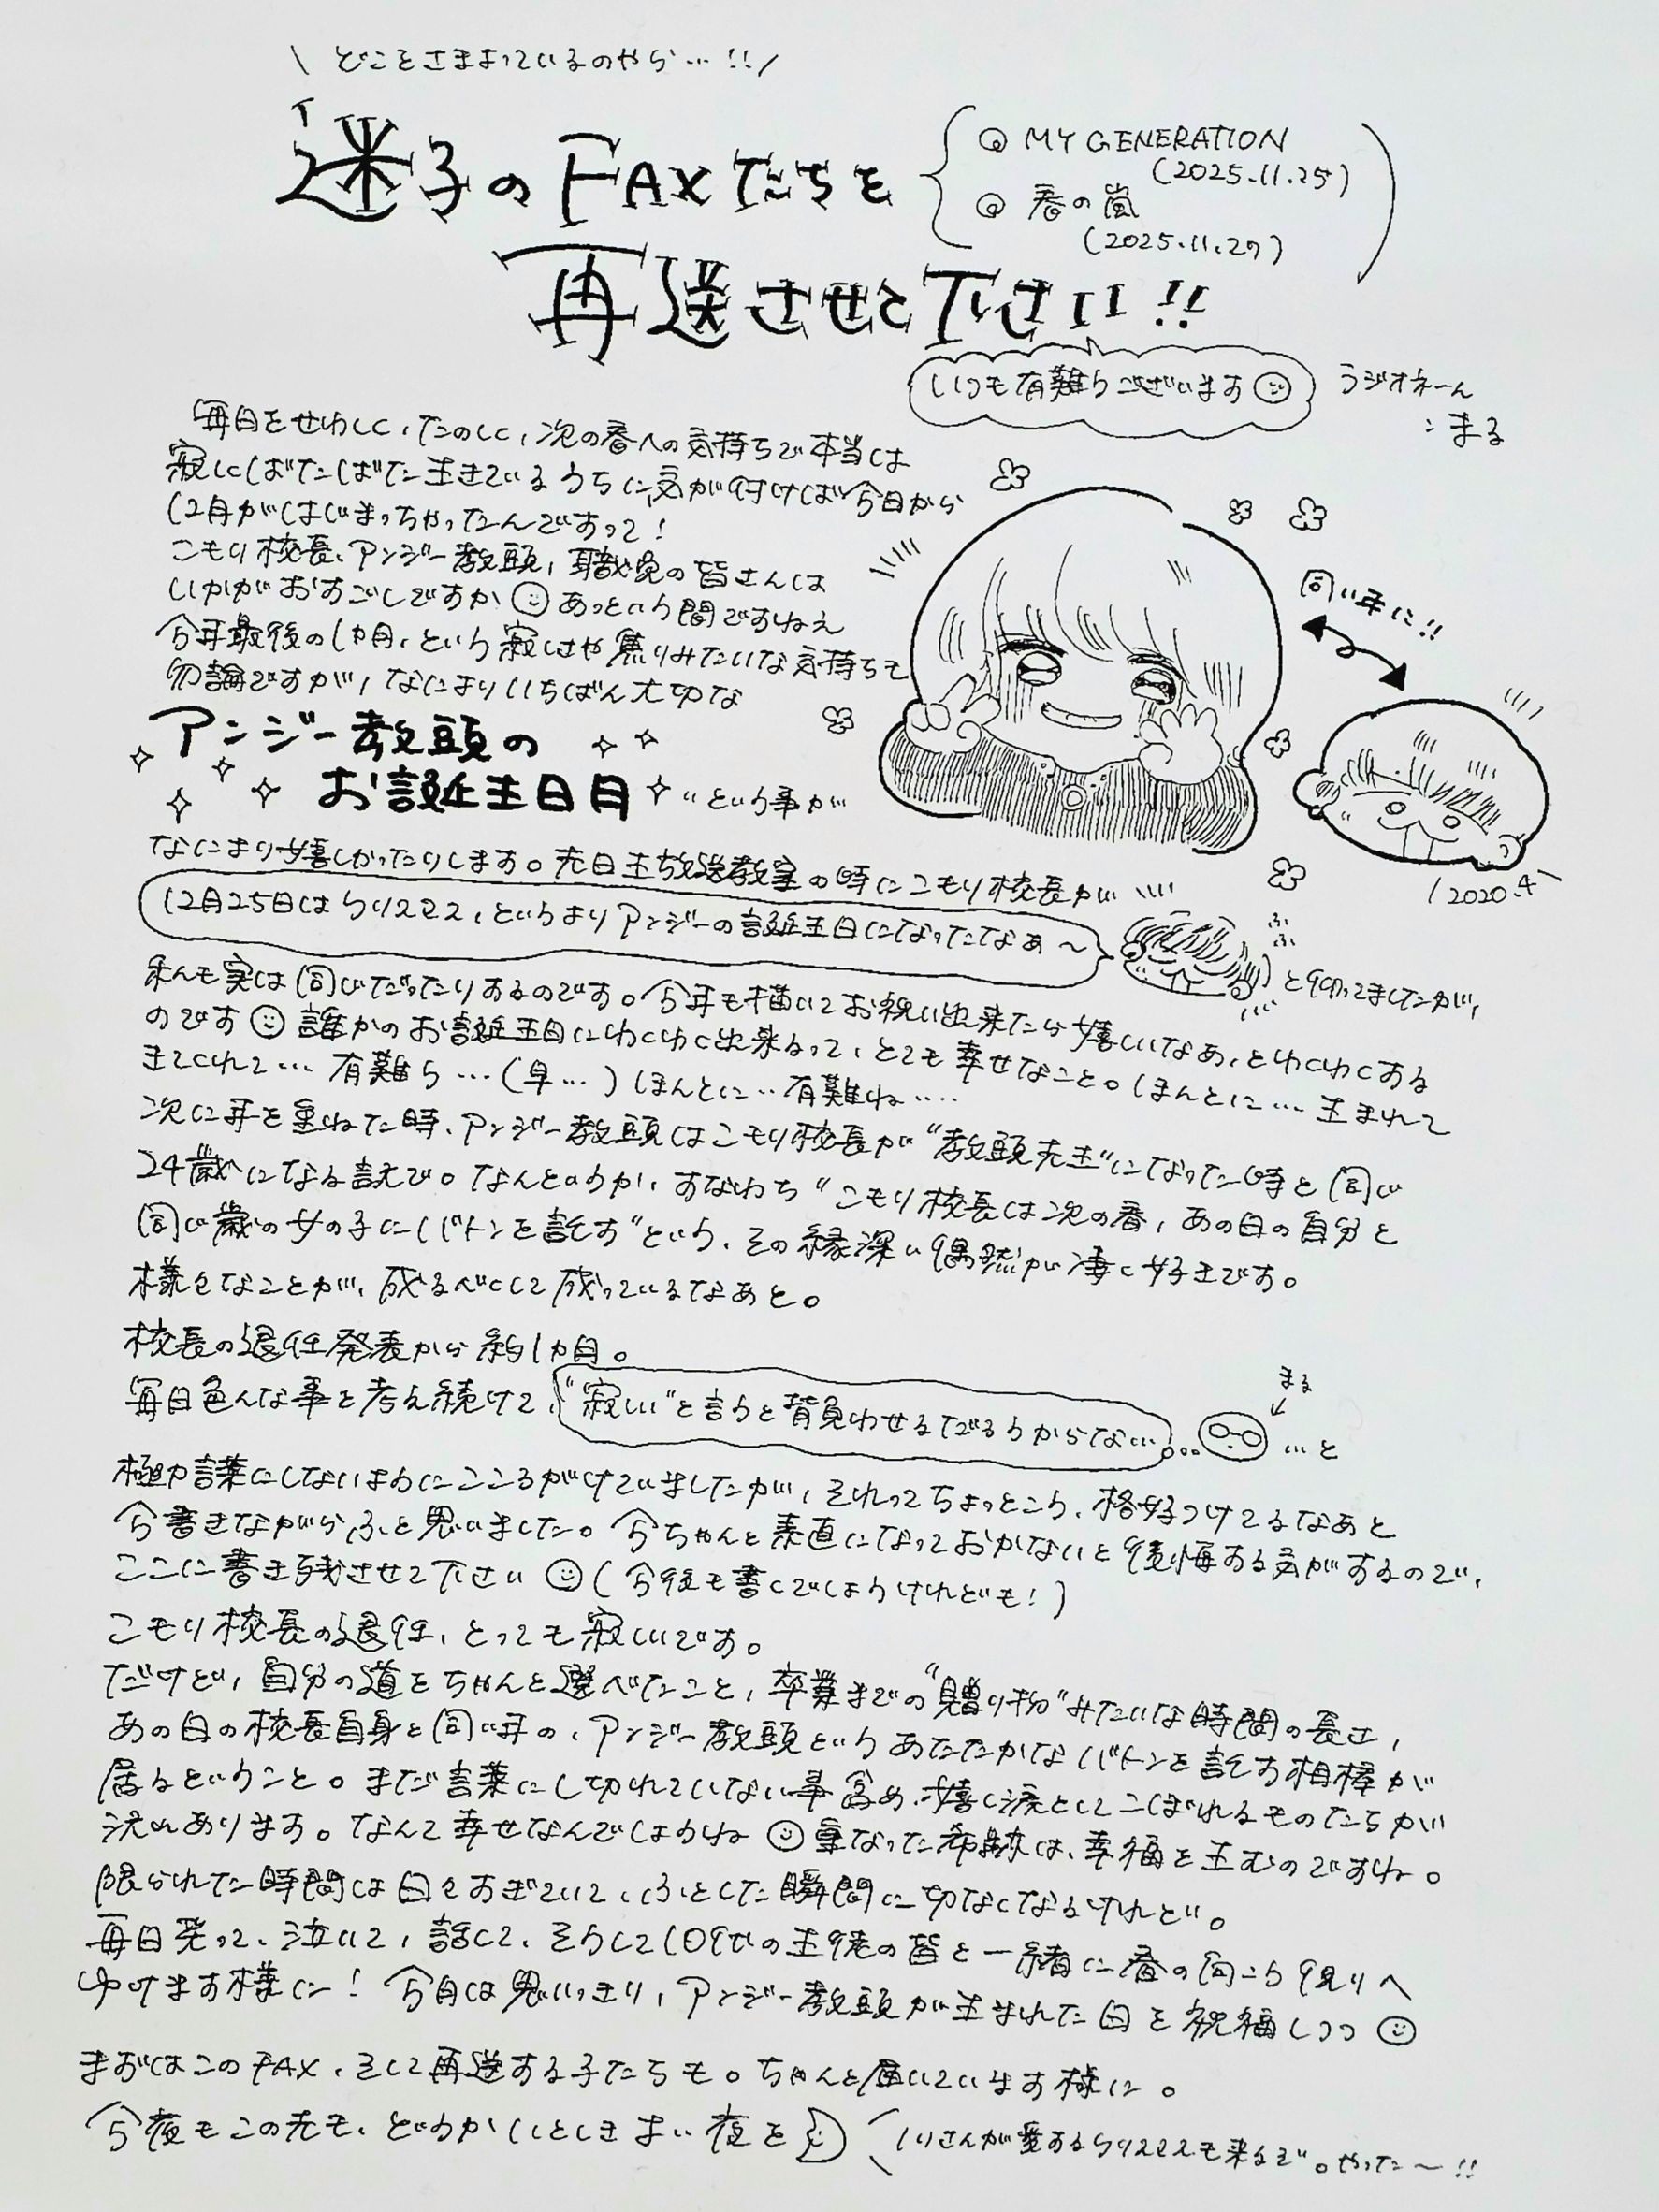 \ どこをさまよっているのやら…!! /
迷子のFAXたちを
@ MY GENERATION
(2025.11.25)
@ 春の嵐
(2025.11.27)
再送させて下さい!!
いつも有難うございます
ラジオネーム
:まる
毎日をせわしく、たのしく、次の春への気持ちで本当は
寂しくばたばた生きているうちに、気が付けば今日から
12月がはじまっちゃったんですって!
こもり校長、アンジー教頭、職員の皆さんは
いかがおすごしですか あっという間ですねえ
今年最後の1ヵ月、という寂しさや焦りみたいな気持ちも
勿論ですが、なによりいちばん大切な
アンジー教頭の
お誕生日月
"という事が"
同い年に!!
\2020.4/
なにより嬉しかったりします。先日生放送教室の時にこもり校長が
12月25日はクリスマス、というよりアンジーの誕生日になったなぁ〜
ふふふ
と仰ってましたが、
私も実は同じだったりするのです。今年も描いてお祝い出来たら嬉しいなあ、とわくわくする
のです 誰かのお誕生日にわくわく出来るって、とても幸せなこと。ほんとに… 生まれて
きてくれて… 有難う…(早…) ほんとに…有難ね….
次に年を重ねた時、アンジー教頭はこもり校長が"教頭先生"になった時と同じ
24歳になる訳で。なんというか、すなわち"こもり校長は次の春、あの日の自分と
同じ歳の女の子にバトンを託す"という、その縁深い偶然が凄く好きです。
様々なことが、残るべくして残っているなあと。
校長の退任発表から約1ヵ月。
毎日色んな事を考え続けて、
"寂しい"と言うと背負わせるだろうからな…
まる
…と
極力言葉にしないようにこころがけていましたが、それってちょっとこう、格好つけてるなあと
今書きながらふと思いました。今ちゃんと素直になっておかないと後悔する気がするので、
ここに書き残させて下さい (今後も書くでしょうけれども!)
こもり校長の退任、とっても寂しいです。
だけど、自分の道をちゃんと選べたこと、卒業までの"贈り物"みたいな時間の長さ、
あの日の校長自身と同い年の、アンジー教頭というあたたかなバトンを託す相棒が
居るということ。まだ言葉にし切れていない事含め、嬉し涙としてこぼれるものたちが
沢山あります。なんて幸せなんでしょうね 重なった奇跡は、幸福を生むのですね。
限られた時間は日々すぎていて、ふとした瞬間に切なくなるけれど。
毎日笑って、泣いて、話して、そうして10代の生徒の皆と一緒に春の向こう側へ
ゆけます様に! 今月は思いっきり、アンジー教頭が生まれた日を祝福しつつ
まずはこのFAX、そして再送する子たちも。ちゃんと届いています様に。
今夜もこの先も、どうかいとしきよい夜を
(いさんが愛するクリスマスも来るぞ。やった〜!!